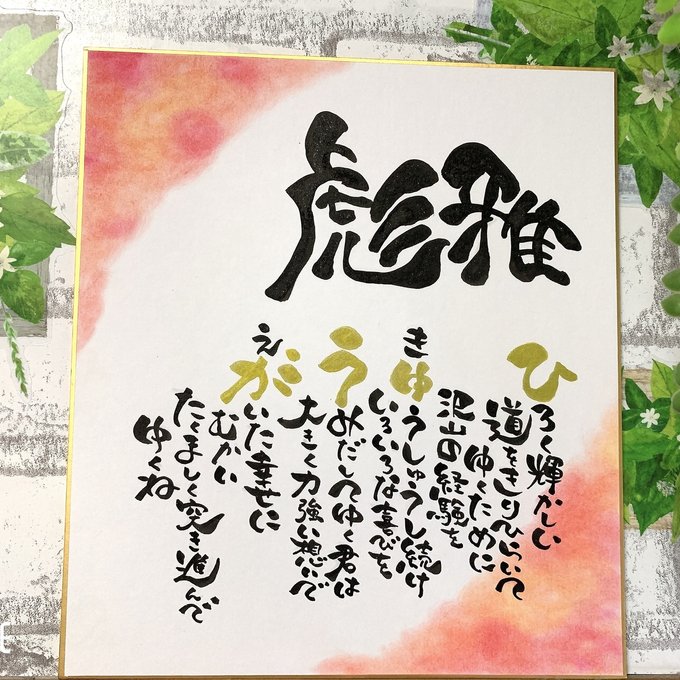 彪雅
ひろく輝かしい
道をきりひらいて
ゆくために
沢山の経験を
きゅうしゅうし続け
いろいろな喜びを
うみだしてゆく君は
大きく力強い想いで
えがいた幸せに
むかい
たくましく突き進んで
ゆくね